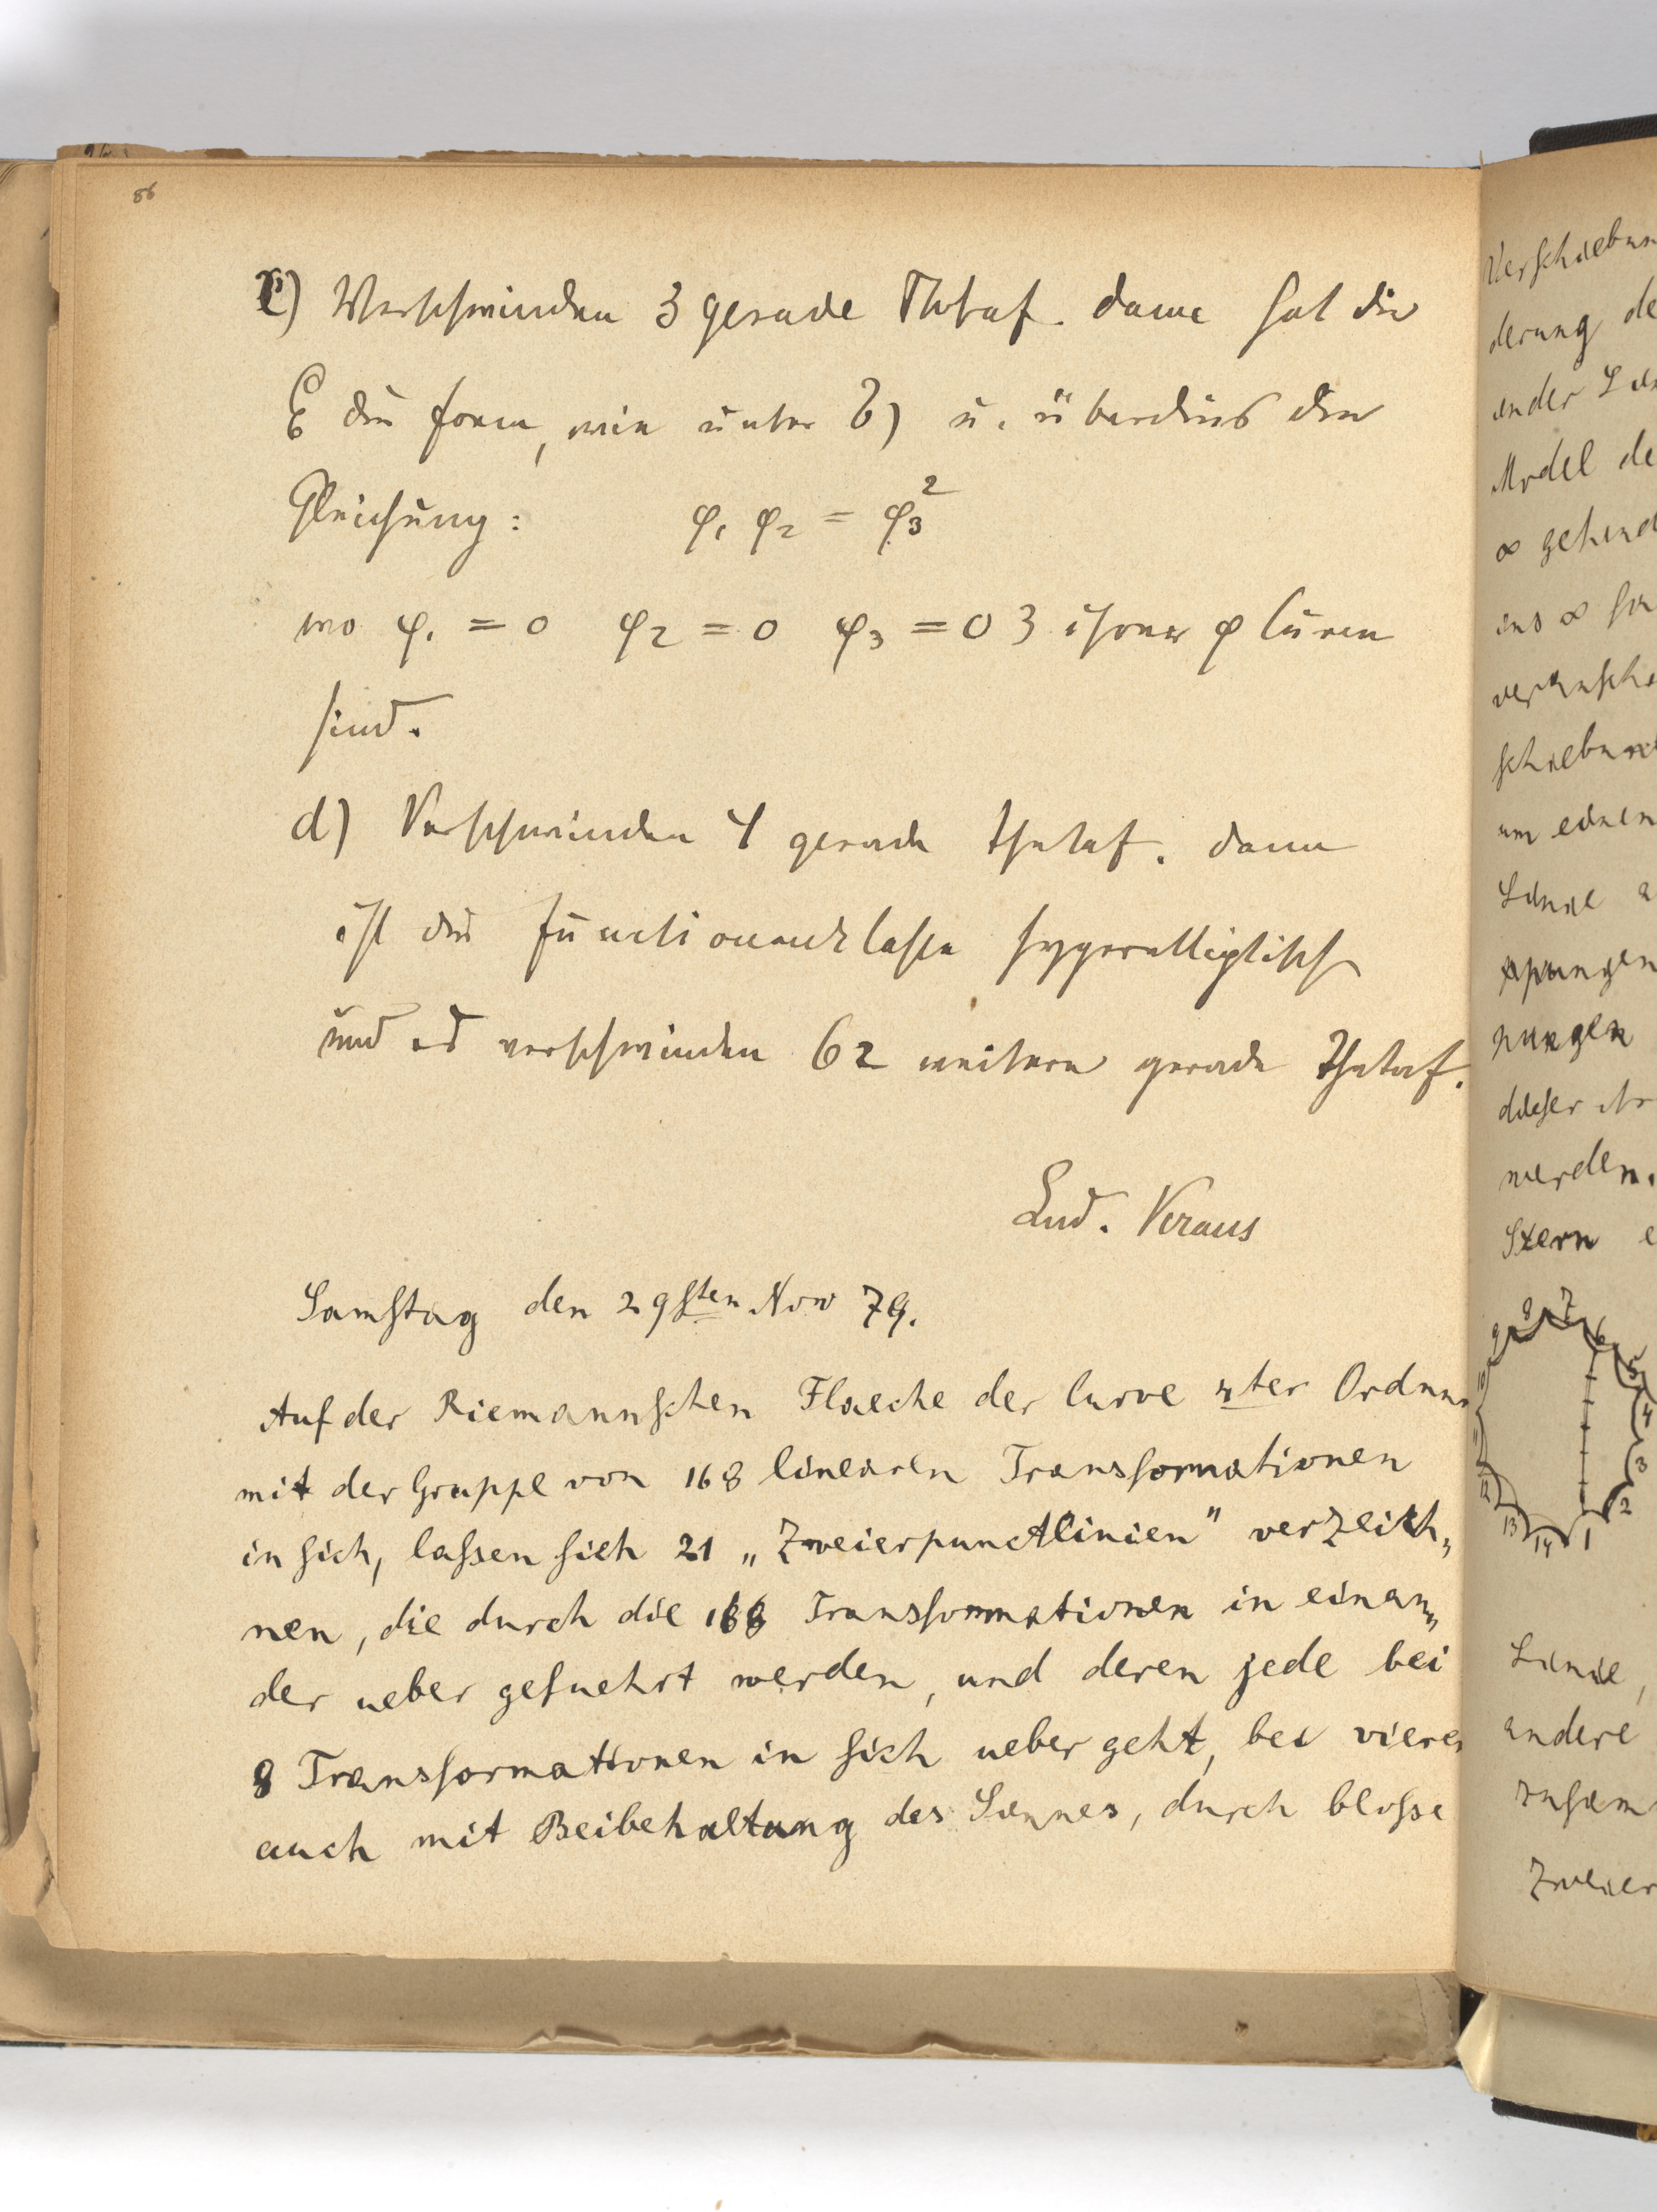 86
c) Verschwinden 3 gerade Thetaf. dann hat die
C6 die Form, wie unter b) u. überdies der
Gleichung: φ1 φ2 = φ3²
wo φ1 = 0 φ2 = 0 φ3 = 0 3 ihrer φ Curven
sind.
d) Verschwinden 4 gerade Thetaf. dann
ist die Functionenklasse hyperelliptisch
und es verschwinden 62 weitere gerade Thetaf.
Lud. Kraus
Samstag den 29sten Nov 79.
Auf der Riemannschen Flaeche der Curve 4ter Ordnu
mit der Gruppe von 168 linearen Transformationen
in sich, lassen sich 21 „Zweierpunctlinien" verzeich„
nen, die durch die 168 Transformationen in einan„
der ueber gefuehrt werden, und deren jede bei
8 Transformationen in sich ueber geht, bei vieren
auch mit Beibehaltung des Sinnes, durch blosse
Verschiebun
derung de
ander Lin
Model de
∞ gehend
ins ∞
veransch
schiebun
um einen
Linie a
dieser
werden.
Stern e
1 2 3 4 5 6 7 8 9 12 13 14
Linie,
andere
zusam
Zweier